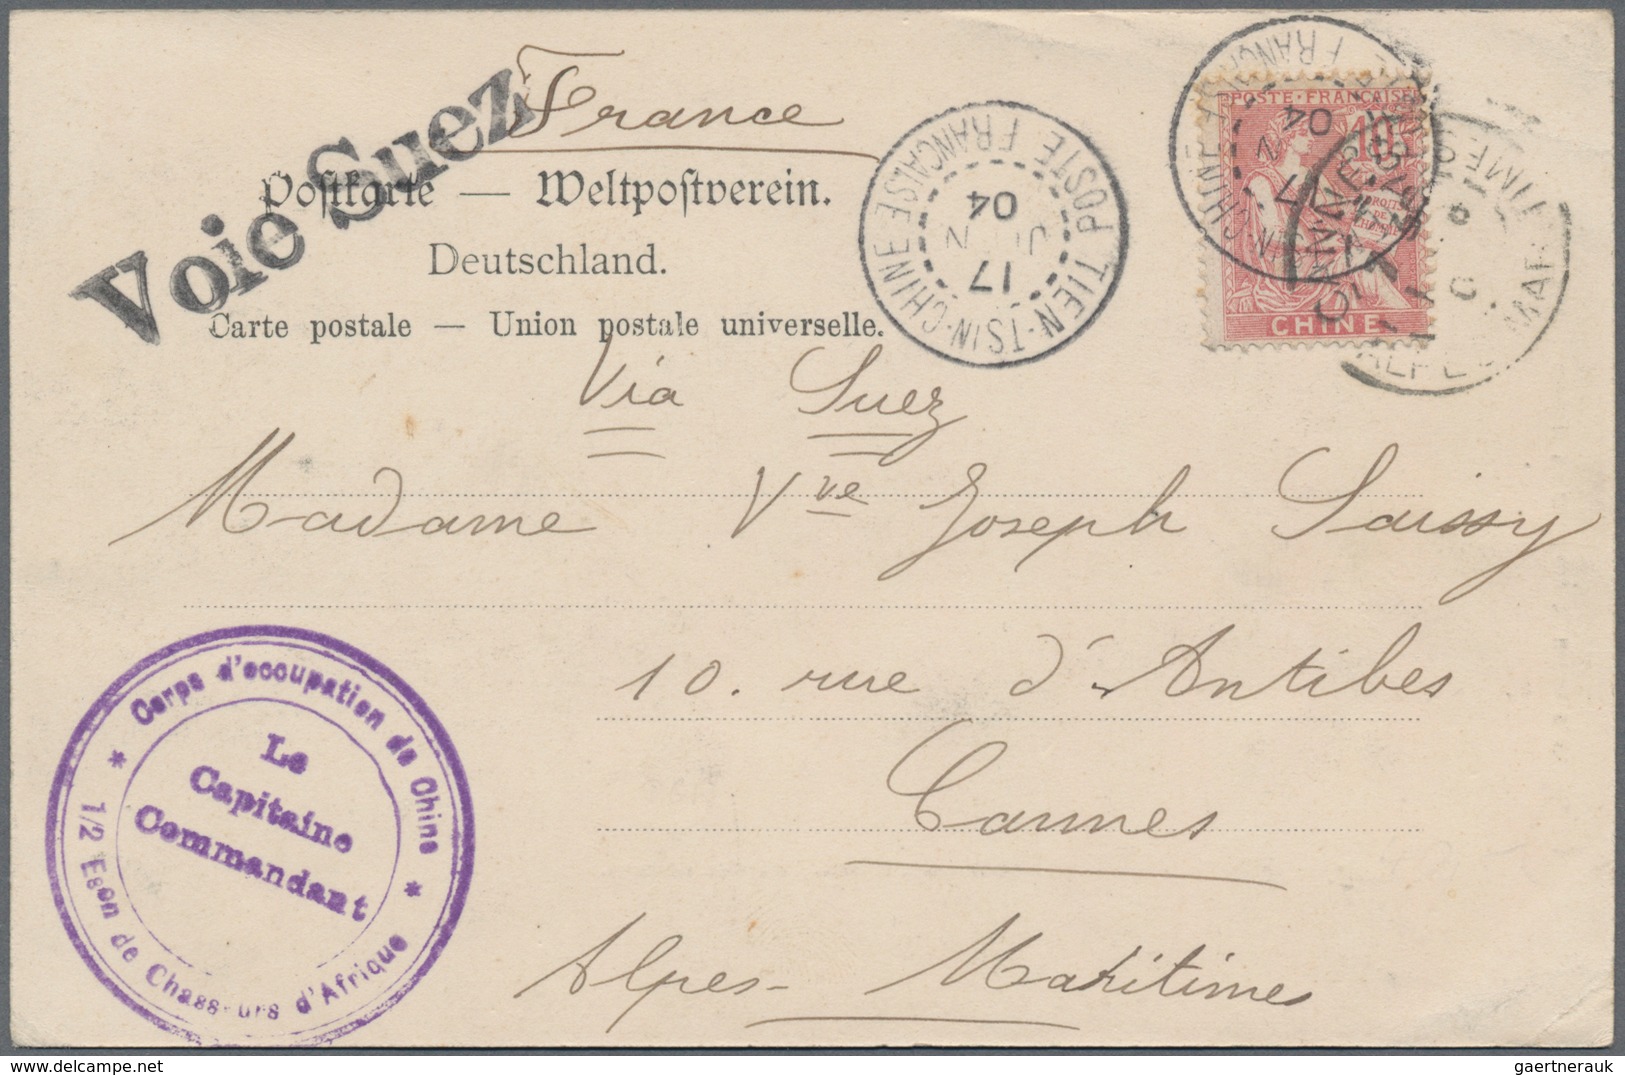 Voie Suez
France
Postkarte — Weltpostverein.
Deutschland.
Carte postale — Union postale universelle.
TIEN-TSIN-CHINE
POSTE FRANÇAISE
17
JUIN
04
POSTE FRANÇAISE
10
CHINE
Via Suez
Madame Vve Joseph Saissy
10. rue d'Antibes
Cannes
Alpes-Maritimes
Corps d'occupation de Chine
Le
Capitaine
Commandant
1/2 Eson de Chasseurs d'Afrique
gaertnerauk